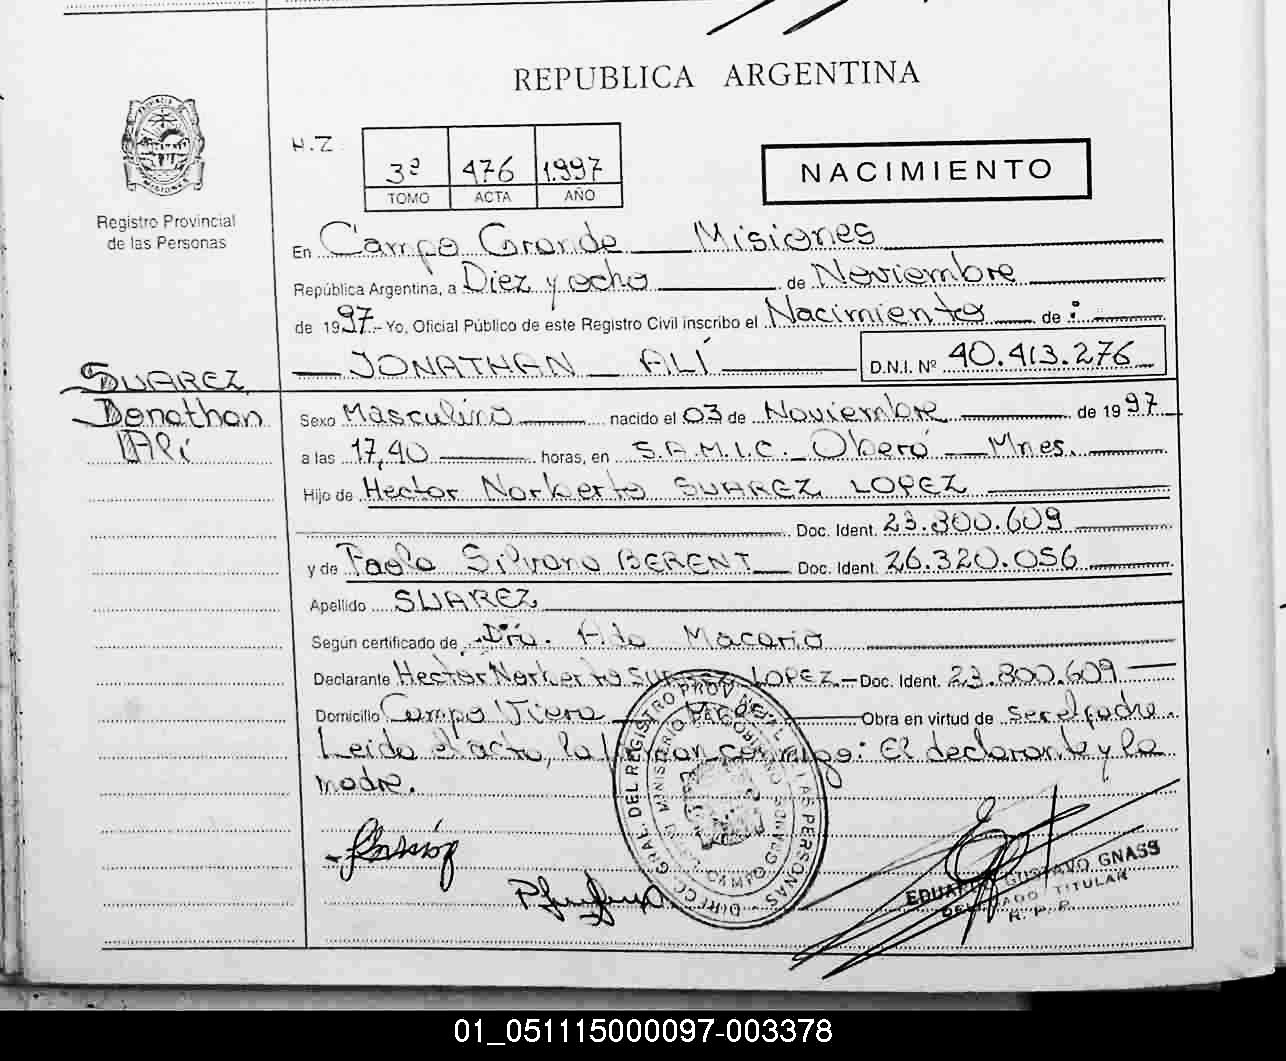 REPUBLICA ARGENTINA
H.Z.
3º 476 1.997
TOMO ACTA AÑO
NACIMIENTO
PROVINCIA DE MISIONES
Registro Provincial
de las Personas
En Campo Grande Misiones
República Argentina, a Diez y ocho de Noviembre
de 1997.- Yo, Oficial Público de este Registro Civil inscribo el Nacimiento de :
JONATHAN ALÍ D.N.I. Nº 40.413.276
SUAREZ
Jonathan
Alí
Sexo Masculino nacido el 03 de Noviembre de 1997
a las 17,40 horas, en S.A.M.I.C. Oberá Mnes.
Hijo de Hector Norberto SUAREZ LOPEZ
Doc. Ident. 23.800.609
y de Paola Silvana BERENT Doc. Ident. 26.320.056
Apellido SUAREZ
Según certificado de Dra. Ada Macario
Declarante Hector Norberto SUAREZ LOPEZ.- Doc. Ident. 23.800.609
Domicilio Campo Viera Mnes. Obra en virtud de ser el padre.
Leida el acta, la firman conmigo: El declarante y la
madre.
DIRECC. GRAL. DEL REGISTRO PROVINCIAL DE LAS PERSONAS
MINISTERIO DE GOBIERNO
CAMPO
EDUARDO GUSTAVO GNASS
DELEGADO TITULAR
R. P. P.
01_051115000097-003378